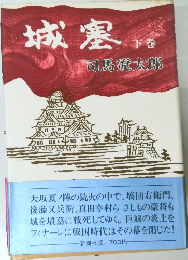 城塞 下巻
司馬遼太郎
大坂夏ノ陣の銃火の中で、塙団右衛門、
後藤又兵衛、真田幸村らさしもの豪将も
城を墳墓に戦死してゆく。巨城の炎上を
フィナーレに戦国時代はその幕を閉じた!
新潮社版/700円